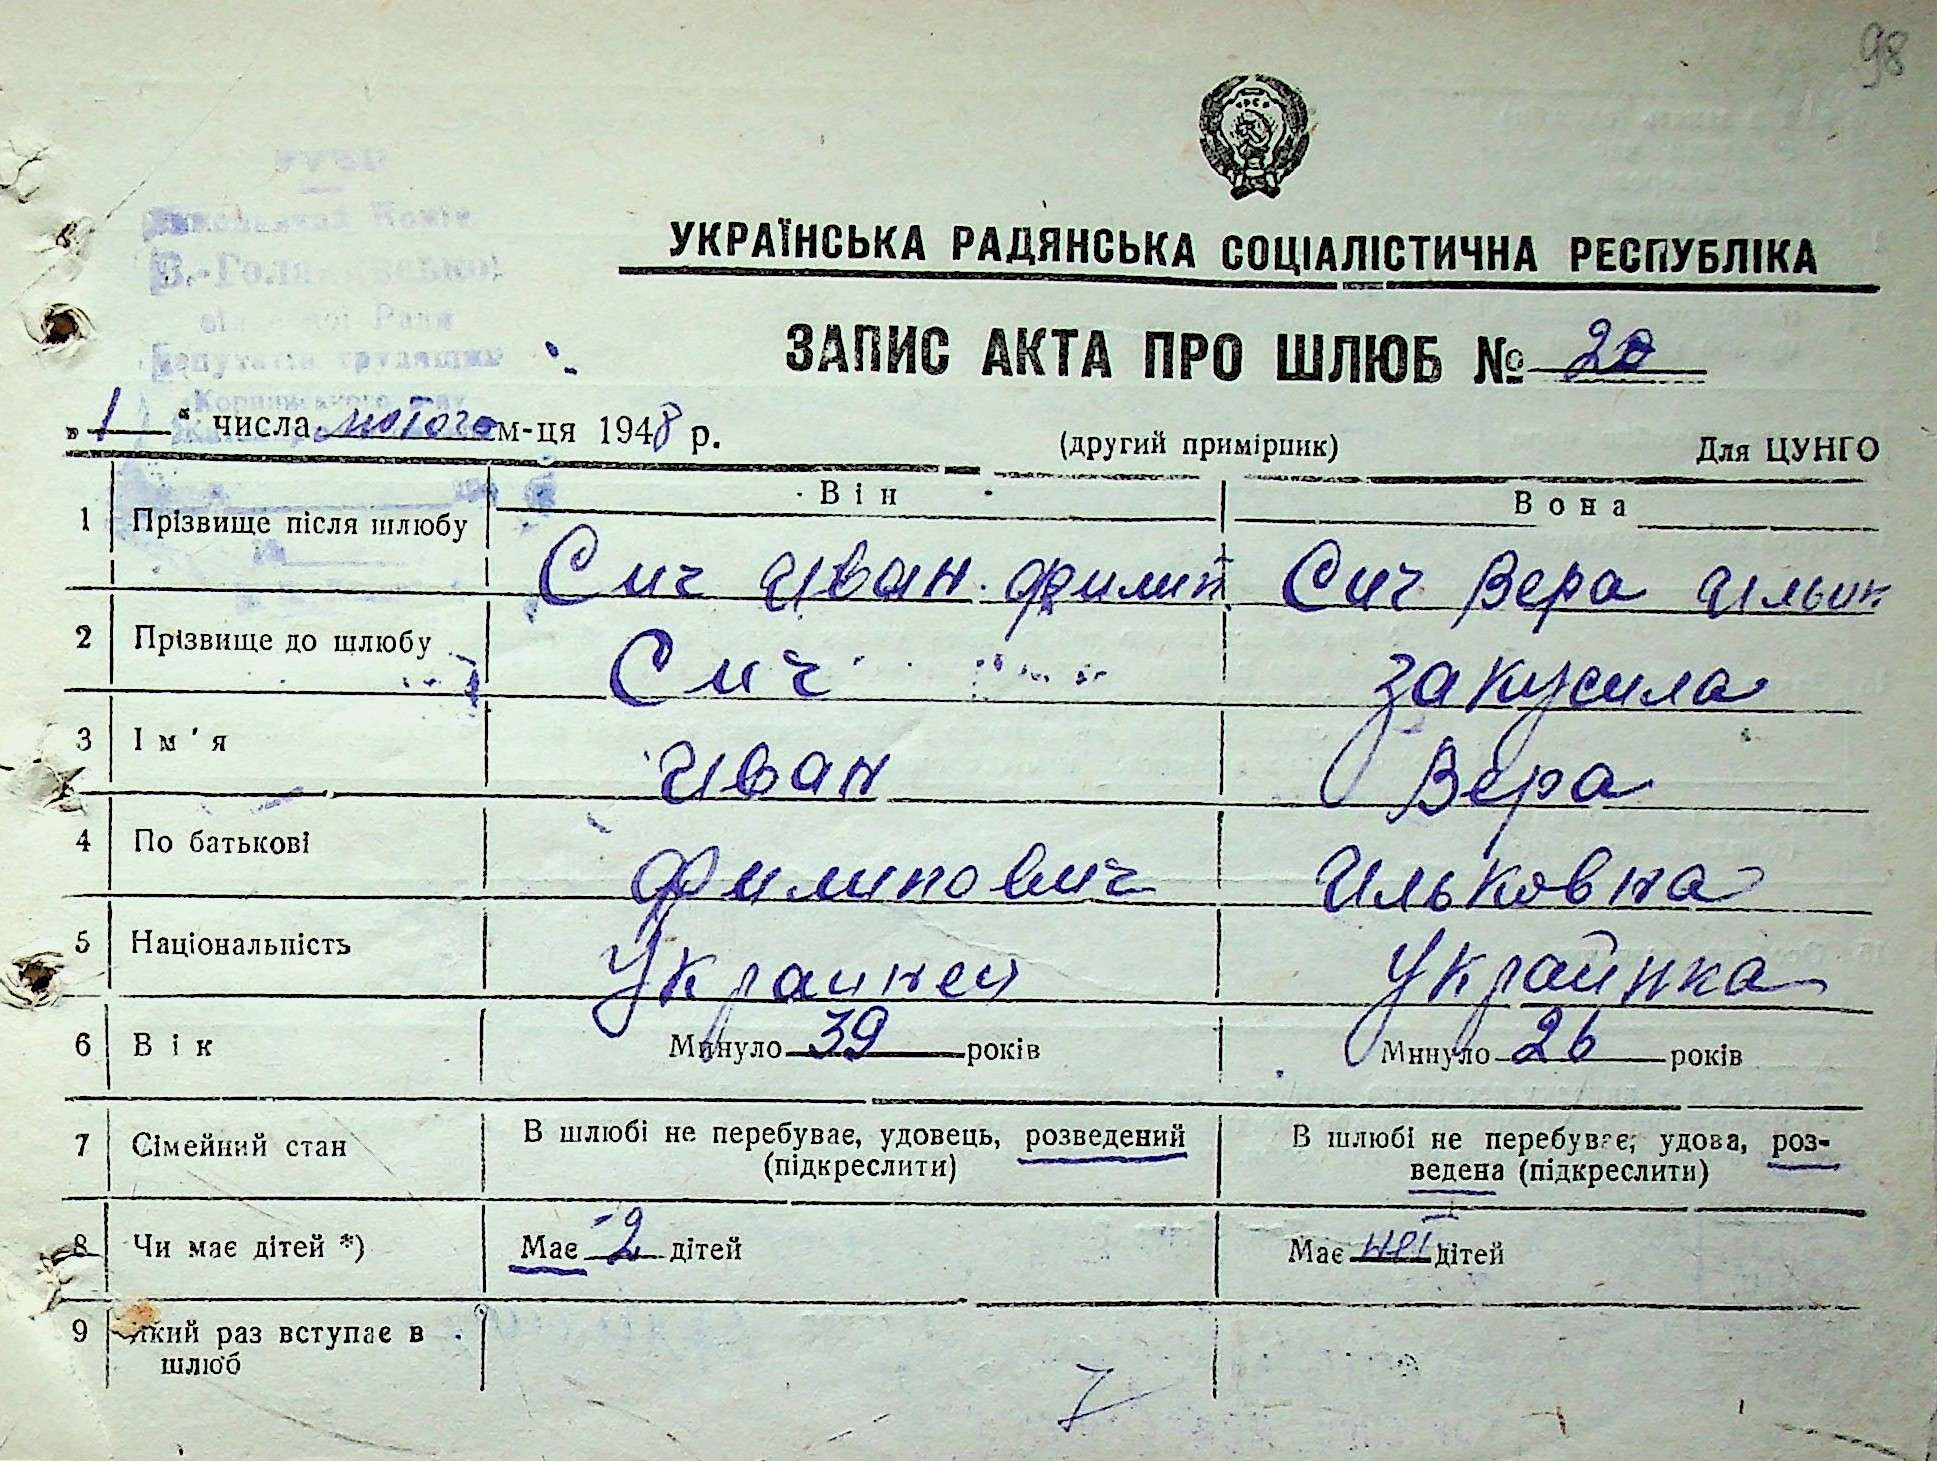 98
УКРАЇНСЬКА РАДЯНСЬКА СОЦІАЛІСТИЧНА РЕСПУБЛІКА
ЗАПИС АКТА ПРО ШЛЮБ № 20
„ 1 " числа лютого м-ця 1948 р.
(другий примірник) Для ЦУНГО
Він Вона
1 Прізвище після шлюбу Сич Иван Филип Сич Вера Ильик
2 Прізвище до шлюбу Сич Закусила
3 Ім'я Иван Вера
4 По батькові Филипович Ильковна
5 Національність Украинец Украинка
6 Вік Минуло 39 років Минуло 26 років
7 Сімейний стан В шлюбі не перебуває, удовець, розведений (підкреслити) В шлюбі не перебуває, удова, роз-
ведена (підкреслити)
8 Чи має дітей *) Має 2 дітей Має неї дітей
9 Який раз вступає в
шлюб